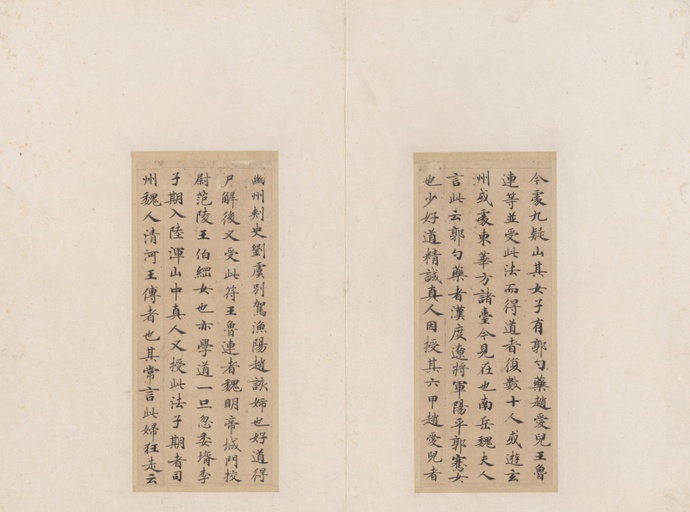 今處九疑山其女子有郭勺藥趙愛兒王魯
連等並受此法而得道者復數十人或遊玄
州或處東華方諸臺今見在也南岳魏夫人
言此云郭勺藥者漢度遼將軍陽平郭騫女
也少好道精誠真人因授其六甲趙愛兒者
幽州刺史劉虞別駕漁陽趙詠婦也好道得
尸解後又受此符王魯連者魏明帝城門校
尉范陵王伯綱女也亦學道一旦忽委壻李
子期入陸渾山中真人又授此法子期者司
州魏人清河王傳者也其常言此婦狂走云